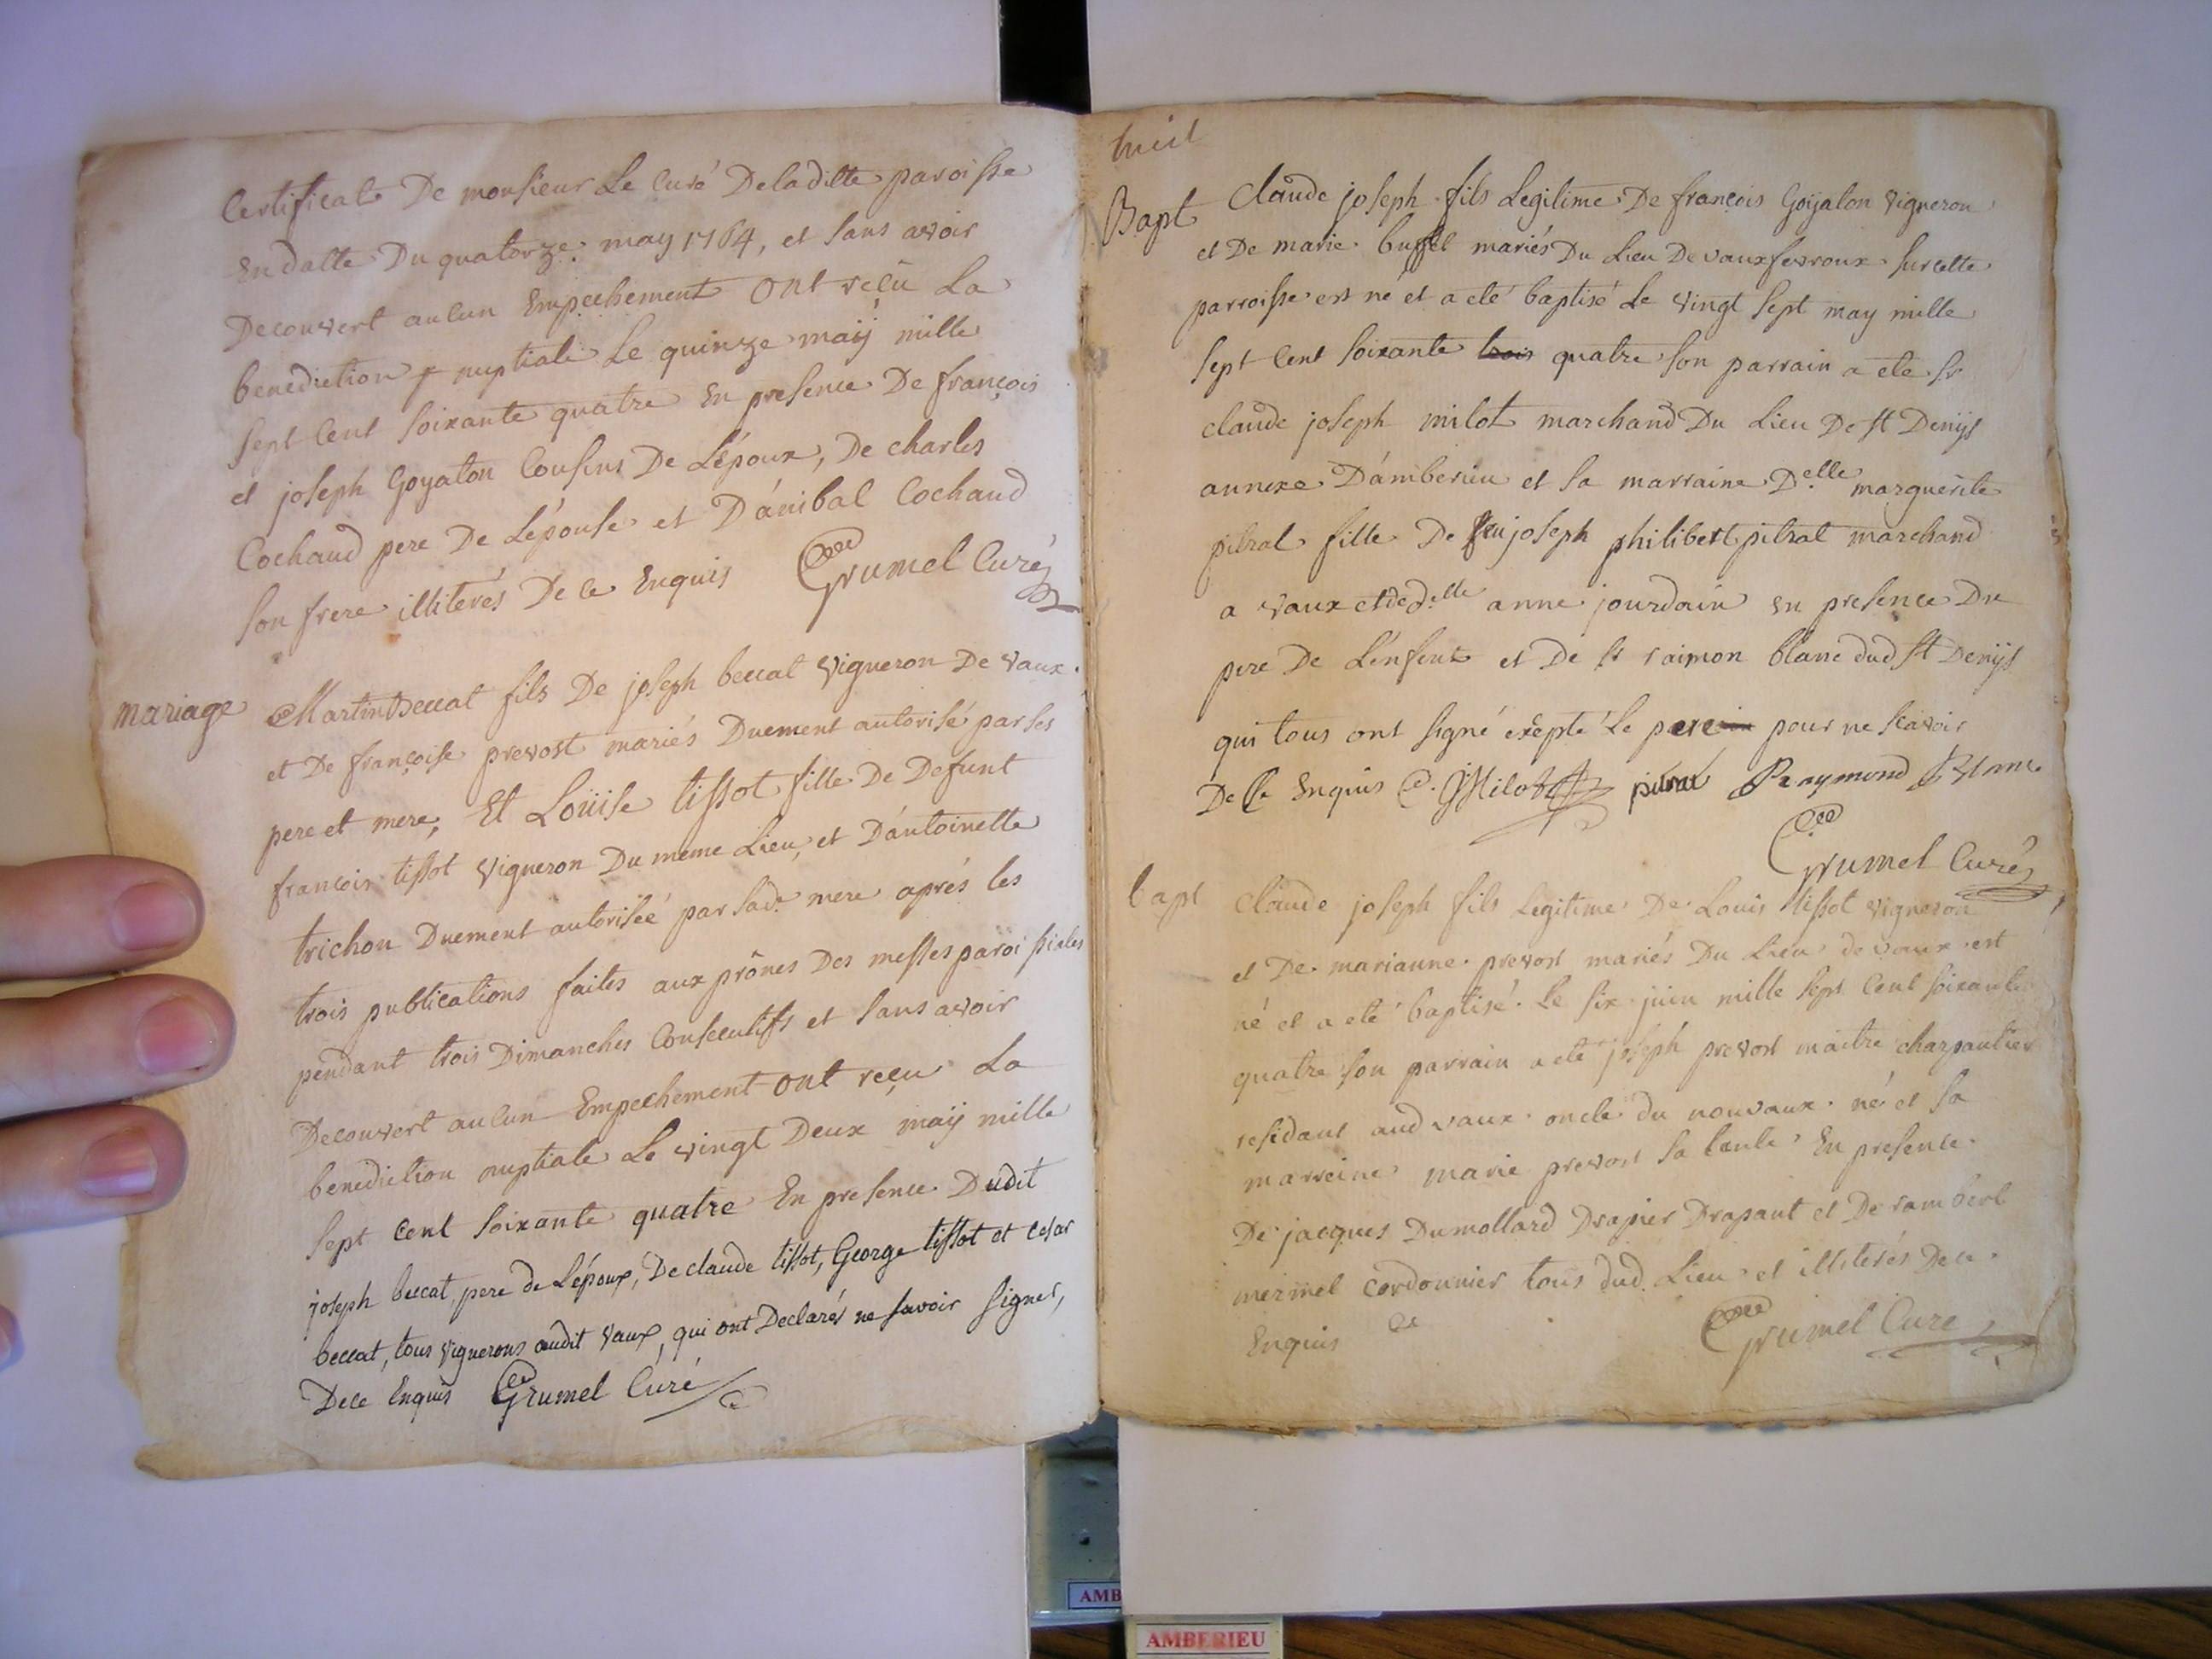 Certificat De monsieur Le Curé Deladitte paroisse
En datte Du quatorze may 1764, et sans avoir
Decouvert aucun Empechement Ont reçû La
benediction nuptiale Le quinze maÿ mille
sept Cent soixante quatre En presence De françois
et joseph Goyaton Cousins De L'époux, De charles
Cochaud pere De L'épouse et D'ánibal Cochaud
son frere illiterés De ce Enquis Grumel Curé
mariage Martin Beccat fils De joseph beccat Vigneron De Vaux
et De françoise prevost mariés Duement autorisé par ses
pere et mere, Et Loüise tissot fille De Defunt
francois tissot Vigneron Du meme Lieu, et D'ántoinette
trichon Duement autorisée par sade mere aprés les
trois publications faites aux prônes Des messes paroissiales
pendant trois Dimanches Consecutifs et sans avoir
Decouvert aucun Empechement ont reçu La
benediction nuptiale Le vingt Deux maÿ mille
sept Cent soixante quatre En presence Dudit
joseph beccat, pere de L'époux, De claude tissot, George tissot et Cesar
beccat, tous vignerons audit Vaux, qui ont Declarés ne savoir signer,
De ce Enquis Grumel Curé
huit
Bapt Claude joseph fils Legitime De françois Goÿaton Vigneron
et De marie buffet mariés Du Lieu De vauxfevroux sur cette
parroisse est né et a eté baptisé Le Vingt sept may mille
sept Cent soixante trois quatre son parrain a ete sr
claude joseph milot marchand Du Lieu De st Denijs
annexe D'ámberieu et sa marraine Delle marguerite
pitrat fille De feu joseph philibert pitrat marchand
a Vaux et de delle anne jourdain en presence Du
pere De L'enfent et De sr raimon blanc dud st Denijs
qui tous ont signé exepté Le pere pour ne scavoir
De Ce Enquis C. J Milot pitrat Raymond Blanc
Grumel Curé
bapt Claude joseph fils Legitime De Louis tissot vigneron
et De marianne prevost mariés Du Lieu de vaux est
né et a eté baptisé Le six juin mille sept Cent soixante
quatre son parrain a eté joseph prevost maitre charpantier
residant aud vaux oncle du nouvaux né et sa
marreine marie prevost sa tante En presence
De jacques Dumollard Drapier Drapant et De rambert
mermet cordonnier tous dud Lieu et illiterés De ce
Enquis Grumel Curé
AMB
AMBERIEU